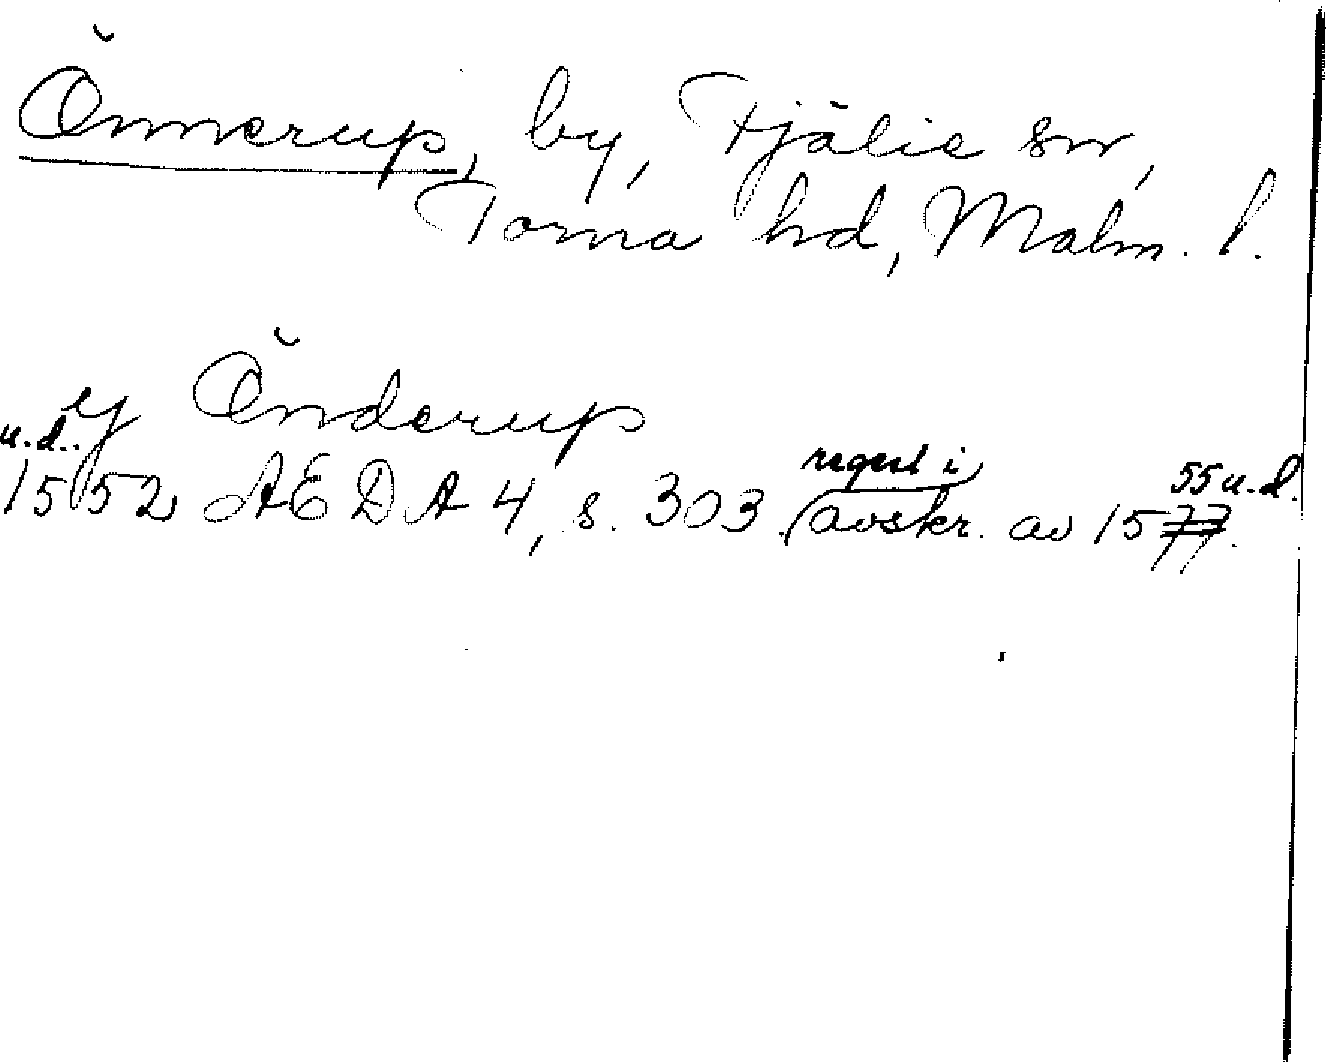 Önnerup, by, Fjälie sn,
Torna hd, Malm. l.
y Önderup
u.d. regest i 55 u.d.
1552 AEDA 4, s. 303 (avskr. av 1577.